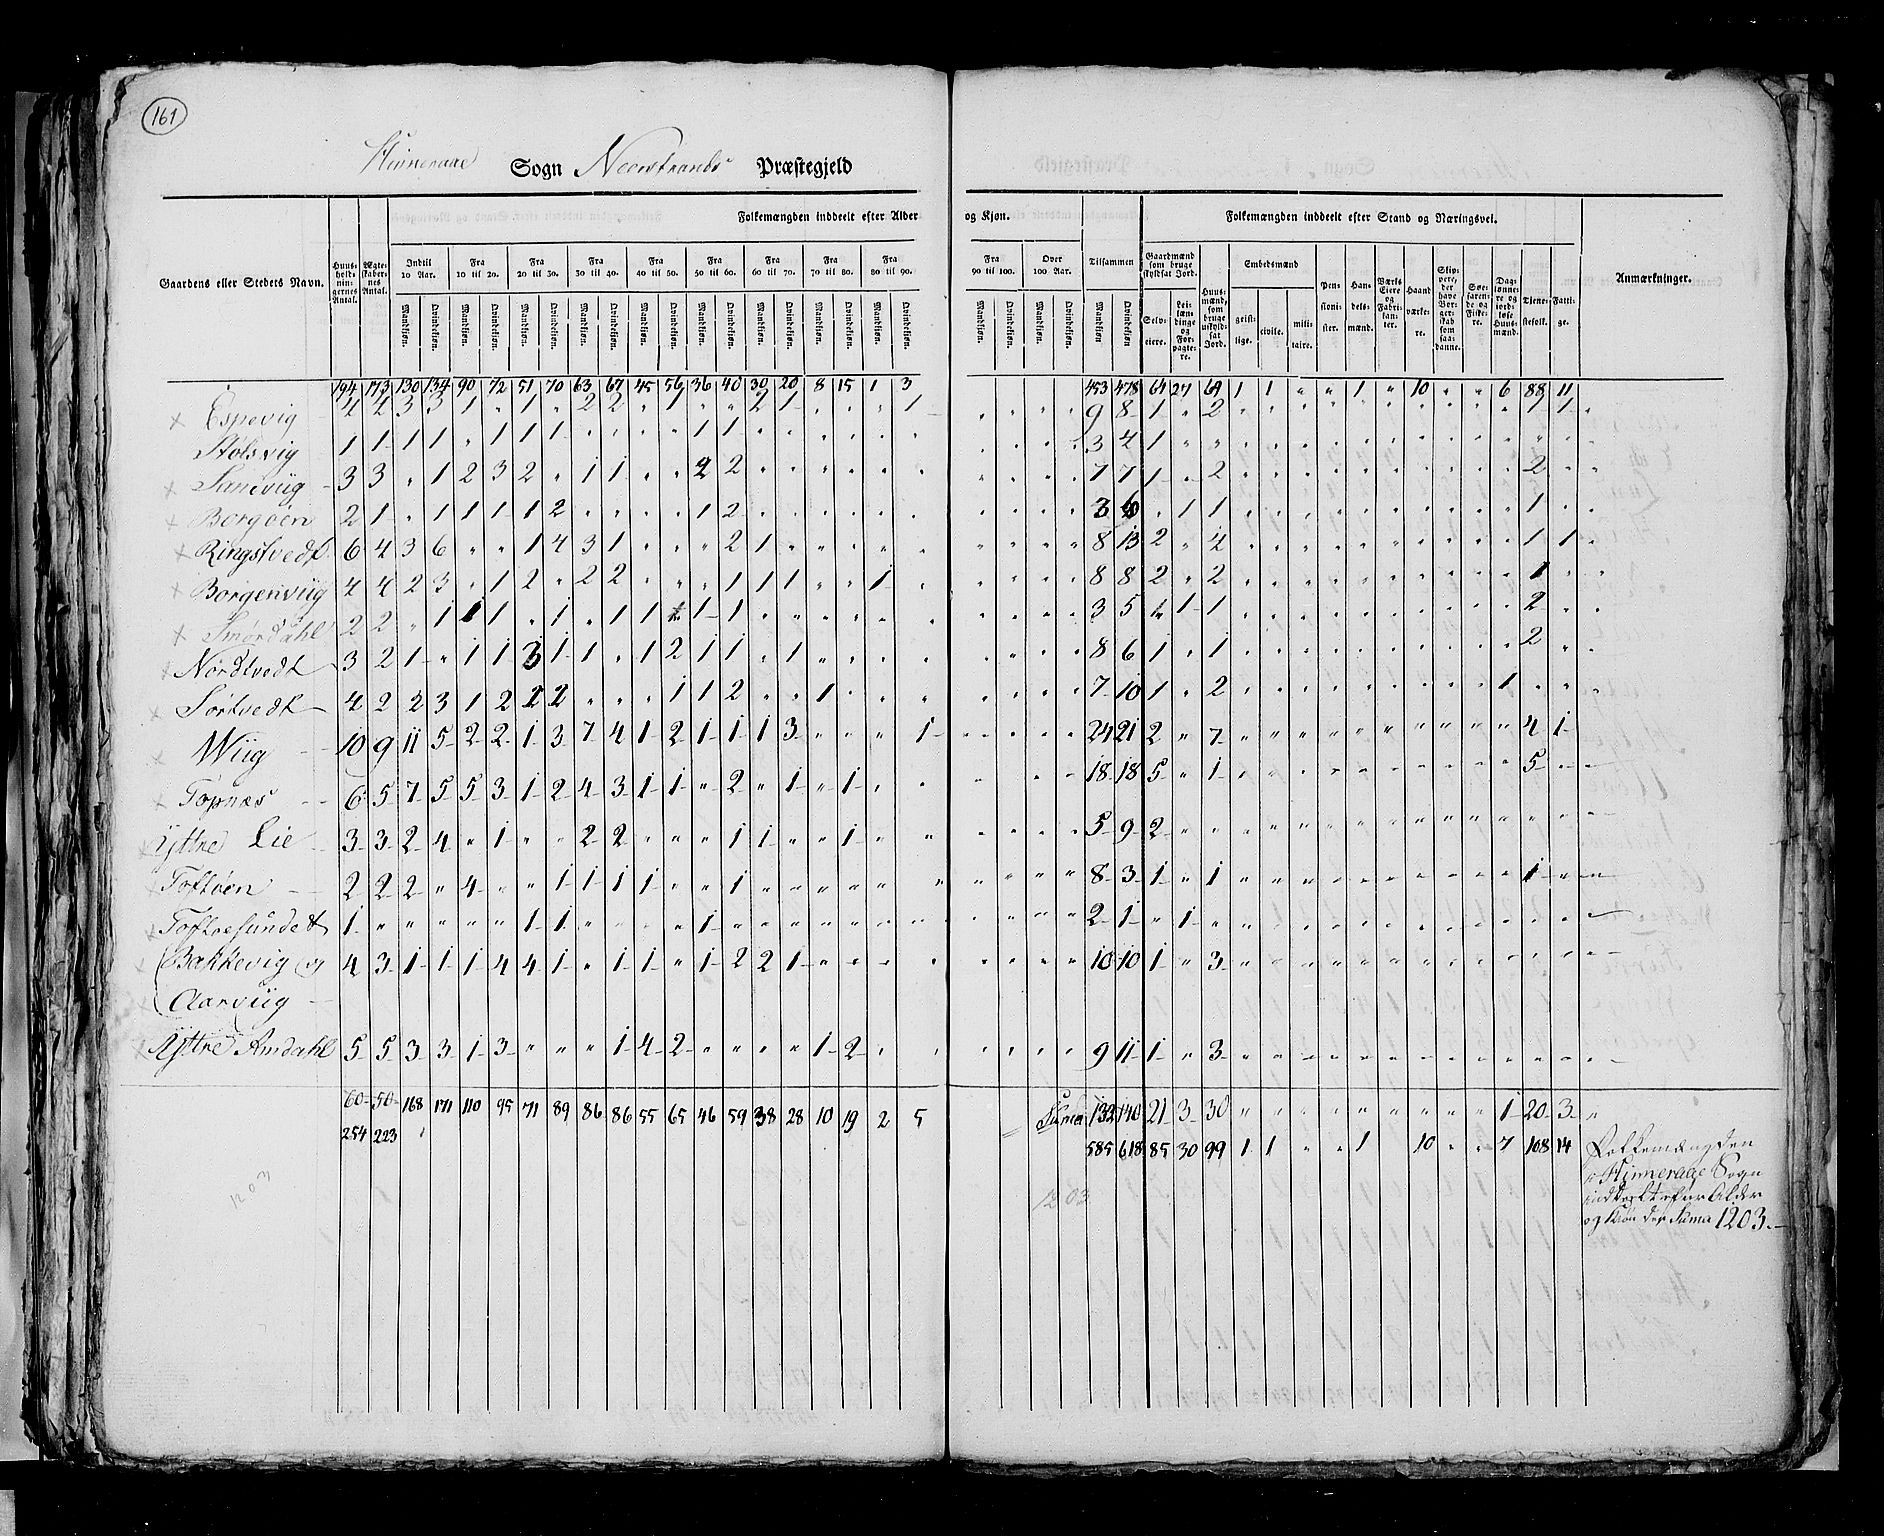 161
Hinneraae Sogn Neerstrands Præstegjeld
Folkemængden inddeelt efter Alder og Kjøn.
Folkemængden inddeelt efter Stand og Næringsvei.
Gaardens eller Stedets Navn.
Huusholdningernes Antal.
Ægteskabernes Antal.
Indtil 10 Aar.
Fra 10 til 20.
Fra 20 til 30.
Fra 30 til 40.
Fra 40 til 50.
Fra 50 til 60.
Fra 60 til 70.
Fra 70 til 80.
Fra 80 til 90.
Fra 90 til 100.
Over 100 Aar.
Tilsammen
Mandkjøn. Qvindekjøn.
Gaardmænd som bruge skyldsat Jord.
Selveiere.
Leilændinge og Forpagtere.
Huusmænd, som bruge uskyldsat Jord.
Embedsmænd
geistlige. civile. militaire.
Pensionister.
Handelsmænd.
Værks Eiere og Fabrikanter.
Haandværkere.
Søefarende og Fiskere.
Tjenestefolk.
Fattige.
Anmærkninger.
194 173 130 134 90 72 51 70 63 67 45 56 36 40 30 20 8 15 1 3 453 478 64 27 69 1 1 " " 1 " 10 " " 6 88 11
Espevig 4 4 3 3 1 " 1 " 2 2 " 1 " " 2 1 " " " 1 9 8 1 " 2 1 1
Stølsvig 1 1 1 1 " 1 1 1 " " " " 1 1 3 4 1
Sandviig 3 3 " 1 2 3 2 " 1 1 " " 2 2 7 7 1 " 2 2
Borgøen 2 1 " 1 1 1 1 2 " " " " 1 2 3 6 " 1 1 1
Ringstvedt 6 4 3 6 " " 1 4 3 1 " " " 2 1 8 13 2 " 4 1 1
Borgenviig 4 4 2 3 " 1 2 " 2 2 " " " 1 1 1 " " 1 8 8 2 " 2 1
Smørdahl 2 2 " 1 1 1 " 1 " 1 1 " 1 1 3 5 " 1 1 2
Nordtvedt 3 2 1 " 1 1 3 1 1 " 1 2 1 1 " 1 8 6 1 " 1 2
Sørtvedt 4 2 2 3 1 2 2 2 " " " 1 1 2 " " 1 7 10 1 " 2 1
Wiig 10 9 11 5 2 2 1 3 7 4 1 2 1 1 1 3 " " " 1 24 21 2 " 7 4 1
Topnæs 6 5 7 5 5 3 1 2 4 3 1 1 " 2 " 1 " 1 18 18 5 " 1 5
Yttre Lie 3 3 2 4 " 1 " " 2 2 " " " 1 1 " " 1 5 9 2
Toftøen 2 2 2 " 4 " " 1 1 1 1 " " 1 8 3 1 " 1 1
Toftoesundet 1 " " " " " 1 1 " " " " 1 2 1 " 1
Bakkevig og 4 3 1 1 1 4 4 1 " 1 1 " 1 2 2 1 10 10 1 " 3
Aarviig
Yttre Amdahl 5 5 3 3 1 3 " " " 1 4 2 " " " " 1 2 9 11 1 " 3
60 50 168 171 110 95 71 89 86 86 55 65 46 59 38 28 10 19 2 5 Suma 132 140 21 3 30 1 20 3
254 223 585 618 85 30 99 1 1 " " 1 10 " " 7 108 14 Folkemængden
i Hinneraae Sogn
inddeelt efter Alder
og Kiøn der Suma 1203.
1203
1203